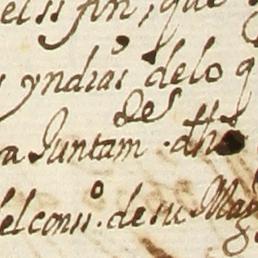 el ssᵗ fin, que
s yndias delo q
des
a Juntamᵗ. dho
del consᵒ. de su Mag